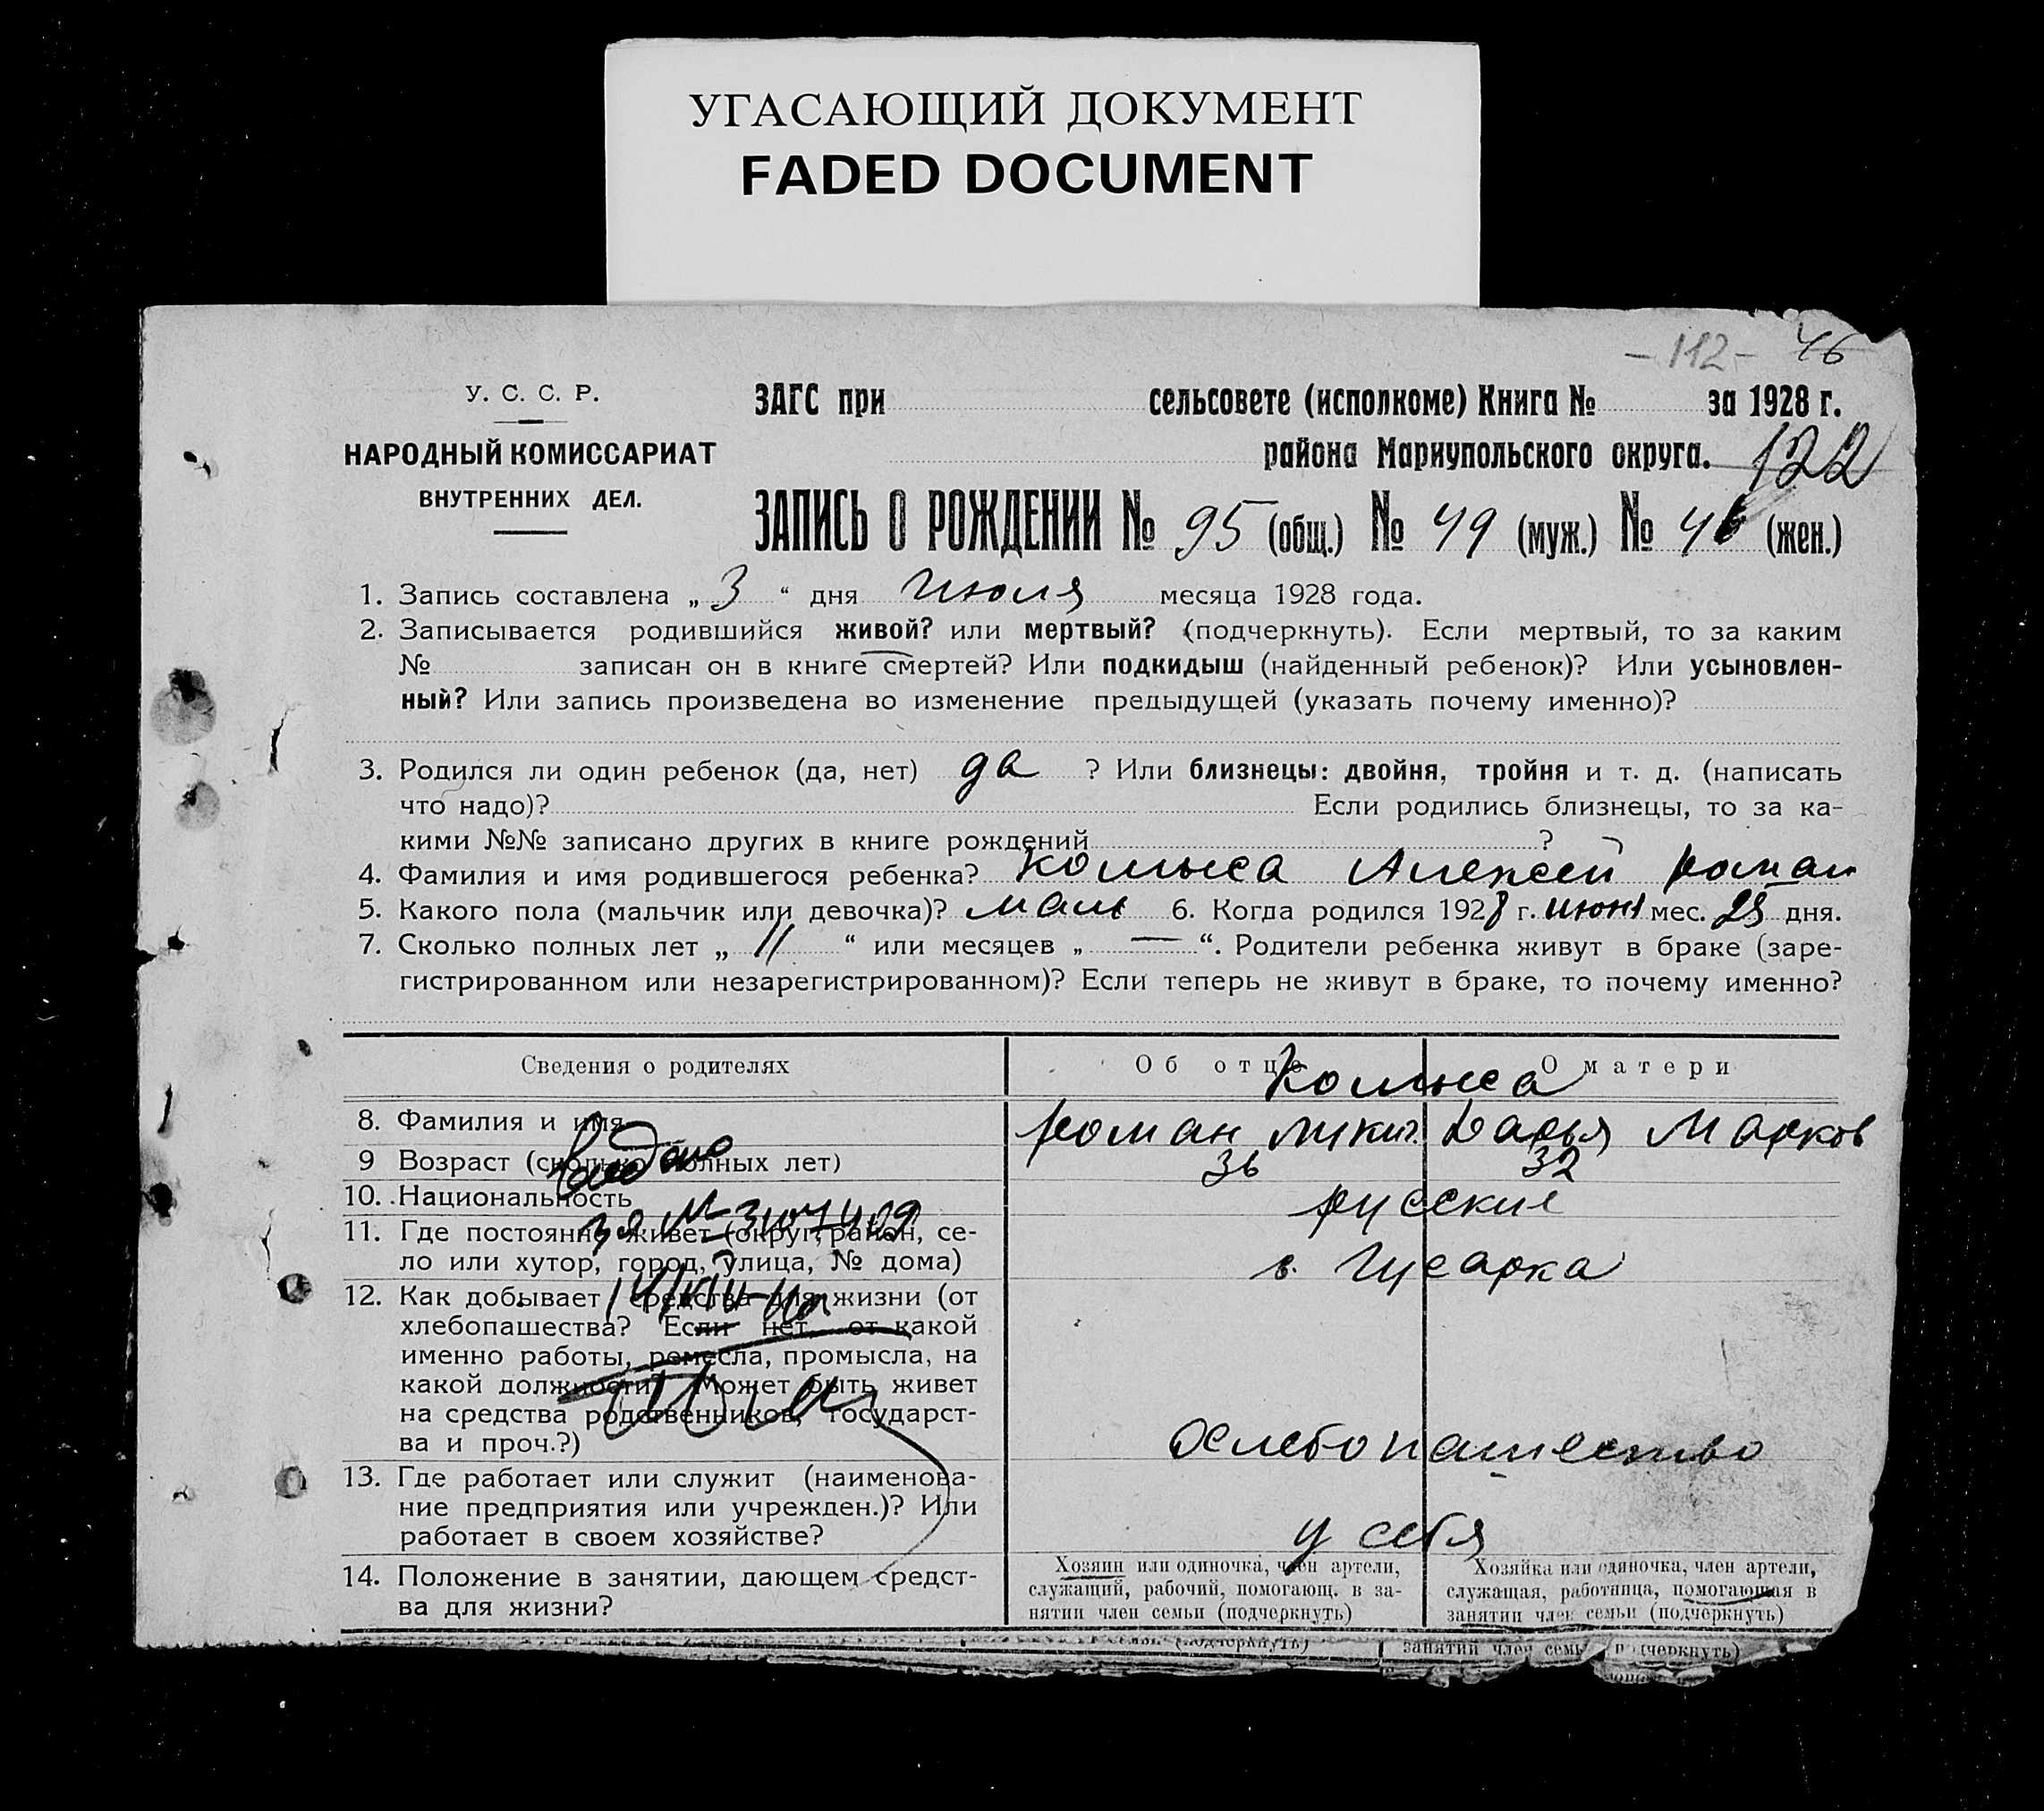 УГАСАЮЩИЙ ДОКУМЕНТ
FADED DOCUMENT
- 112 - 46
У. С. С. Р.
НАРОДНЫЙ КОМИССАРИАТ
ВНУТРЕННИХ ДЕЛ.
ЗАГС при сельсовете (исполкоме) Книга № за 1928 г.
района Мариупольского округа. 122
ЗАПИСЬ О РОЖДЕНИИ № 95 (общ.) № 49 (муж.) № 46 (жен.)
1. Запись составлена „ 3 “ дня Июля месяца 1928 года.
2. Записывается родившийся живой? или мертвый? (подчеркнуть). Если мертвый, то за каким
№ записан он в книге смертей? Или подкидыш (найденный ребенок)? Или усыновлен-
ный? Или запись произведена во изменение предыдущей (указать почему именно)?
3. Родился ли один ребенок (да, нет) да ? Или близнецы: двойня, тройня и т. д. (написать
что надо)? Если родились близнецы, то за ка-
кими №№ записано других в книге рождений ?
4. Фамилия и имя родившегося ребенка? Алексей роман
5. Какого пола (мальчик или девочка)? мал 6. Когда родился 1928 г. июня мес. 25 дня.
7. Сколько полных лет „ 11 “ или месяцев „ — “. Родители ребенка живут в браке (заре-
гистрированном или незарегистрированном)? Если теперь не живут в браке, то почему именно?
Сведения о родителях Об отце О матери
8. Фамилия и имя роман Дарья Марков
9 Возраст (сколько полных лет) 36 32
10. Национальность русские
11. Где постоянно живет (округ, район, се-
ло или хутор, город, улица, № дома) в. Гусарка
12. Как добывает средства для жизни (от
хлебопашества? Если нет, от какой
именно работы, ремесла, промысла, на
какой должности? Может быть живет
на средства родственников, государст-
ва и проч.?) Хлебопашество
13. Где работает или служит (наименова-
ние предприятия или учрежден.)? Или
работает в своем хозяйстве? у себя
14. Положение в занятии, дающем средст-
ва для жизни?
Хозяин или одиночка, член артели,
служащий, рабочий, помогающ. в за-
нятии член семьи (подчеркнуть)
Хозяйка или одиночка, член артели,
служащая, работница, помогающая в
занятии член семьи (подчеркнуть)
(подчеркнуть) занятии член семьи